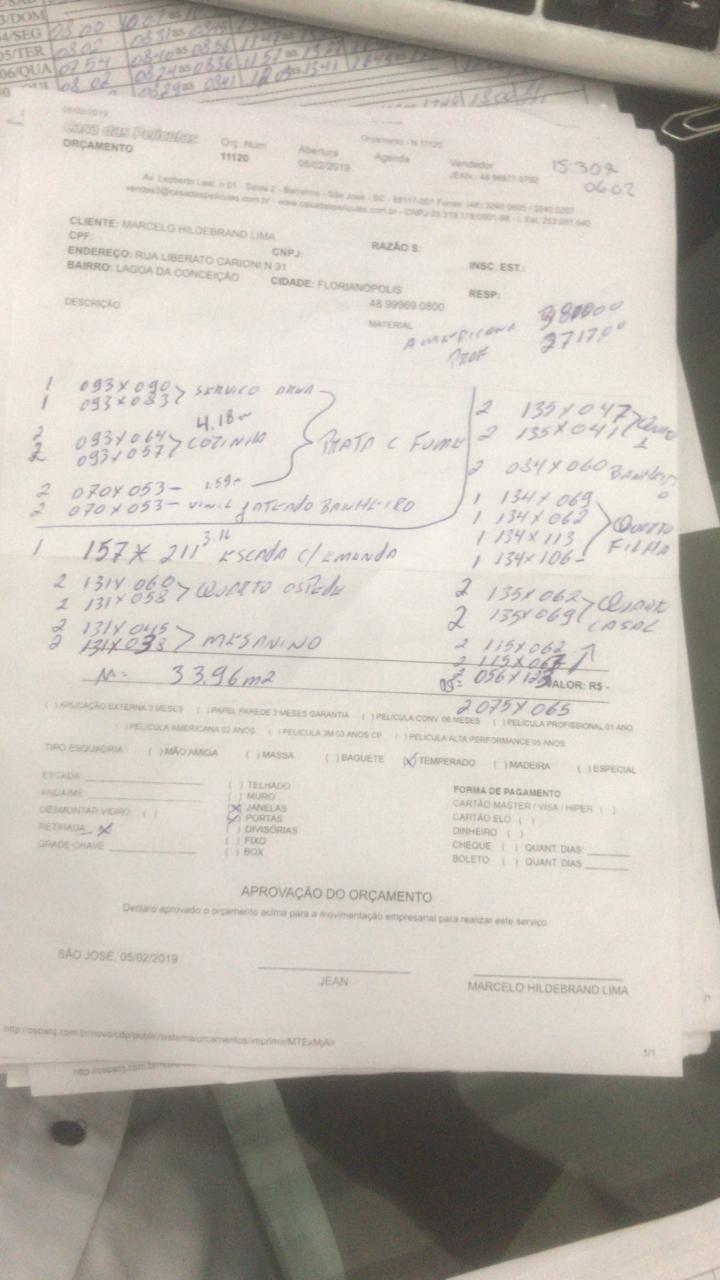 3/DOM
4/SEG 08 00
05/TER 08 02 0831 as
06/QUA 07 54 0840 as 0856 1147
08 02 0824 as 0836 1157
0829 as 0841 1341
05/02/2019 Orçamento - N 11120
Casa das Películas Orç. Num Abertura Agenda Vendedor 15:30
ORÇAMENTO 11120 05/02/2019 JEAN - 48 98871 0792 0602
Av. Leoberto Leal, n 01 - Salas 2 - Barreiros - São José - SC - 88117-001 Fones: (48) 3240 0605 / 3240 0207
vendas3@casadaspeliculas.com.br - www.casadaspeliculas.com.br - CNPJ 03.319.178/0001-98 - I. Est. 253.951.640
CLIENTE: MARCELO HILDEBRAND LIMA RAZÃO S:
CPF: CNPJ: INSC. EST.:
ENDEREÇO: RUA LIBERATO CARIONI N 31
BAIRRO: LAGOA DA CONCEIÇÃO CIDADE: FLORIANÓPOLIS RESP:
48 99969 0800
DESCRIÇÃO MATERIAL
AMERICANA
PROF 2717,00
1 093 X 090
1 093 X 083 SERVICO AREA
4,18
2 093 X 064
2 093 X 057 COZINHA
PRATA C FUME
1.59
2 070 X 053 -
2 070 X 053 - VINIL JATEADO BANHEIRO
3.16
1 157 X 211 ESCADA C/EMENDA
2 131 X 060
2 131 X 058 QUARTO OSPEDE
2 131 X 045
2 131 X 038 MESANINO
M= 33.96 m2
2 135 X 047
2 135 X 041 QUARTO 1
2 034 X 060 BANHEIRO
1 134 X 069
1 134 X 062
1 134 X 113
1 134 X 106 - QUARTO FILHA
2 135 X 062
2 135 X 069 QUARTO CASAL
2 115 X 062
2 115 X 067
2 056 X 123 VALOR: R$ -
2 075 X 065
( ) APLICAÇÃO EXTERNA 3 MESES ( ) PAPEL PAREDE 3 MESES GARANTIA ( ) PELICULA CONV. 06 MESES ( ) PELICULA PROFISSIONAL 01 ANO
( ) PELICULA AMERICANA 02 ANOS ( ) PELICULA 3M 03 ANOS CP ( ) PELICULA ALTA PERFORMANCE 05 ANOS
TIPO ESQUADRIA ( ) MÃO AMIGA ( ) MASSA ( ) BAGUETE (X) TEMPERADO ( ) MADEIRA ( ) ESPECIAL
ESCADA
ANDAIME
DESMONTAR VIDRO: ( )
RETIRADA X
GRADE CHAVE
( ) TELHADO
( ) MURO
(X) JANELAS
(X) PORTAS
( ) DIVISÓRIAS
( ) FIXO
( ) BOX
FORMA DE PAGAMENTO
CARTÃO MASTER / VISA / HIPER ( )
CARTÃO ELO ( )
DINHEIRO ( )
CHEQUE ( ) QUANT. DIAS:
BOLETO ( ) QUANT DIAS
APROVAÇÃO DO ORÇAMENTO
Declaro aprovado o orçamento acima para a movimentação empresarial para realizar este serviço
SÃO JOSÉ, 05/02/2019
JEAN
MARCELO HILDEBRAND LIMA
http://osparq.com.br/novo/cdp/public/sistema/orcamentos/imprimir/MTExMjA=
1/1